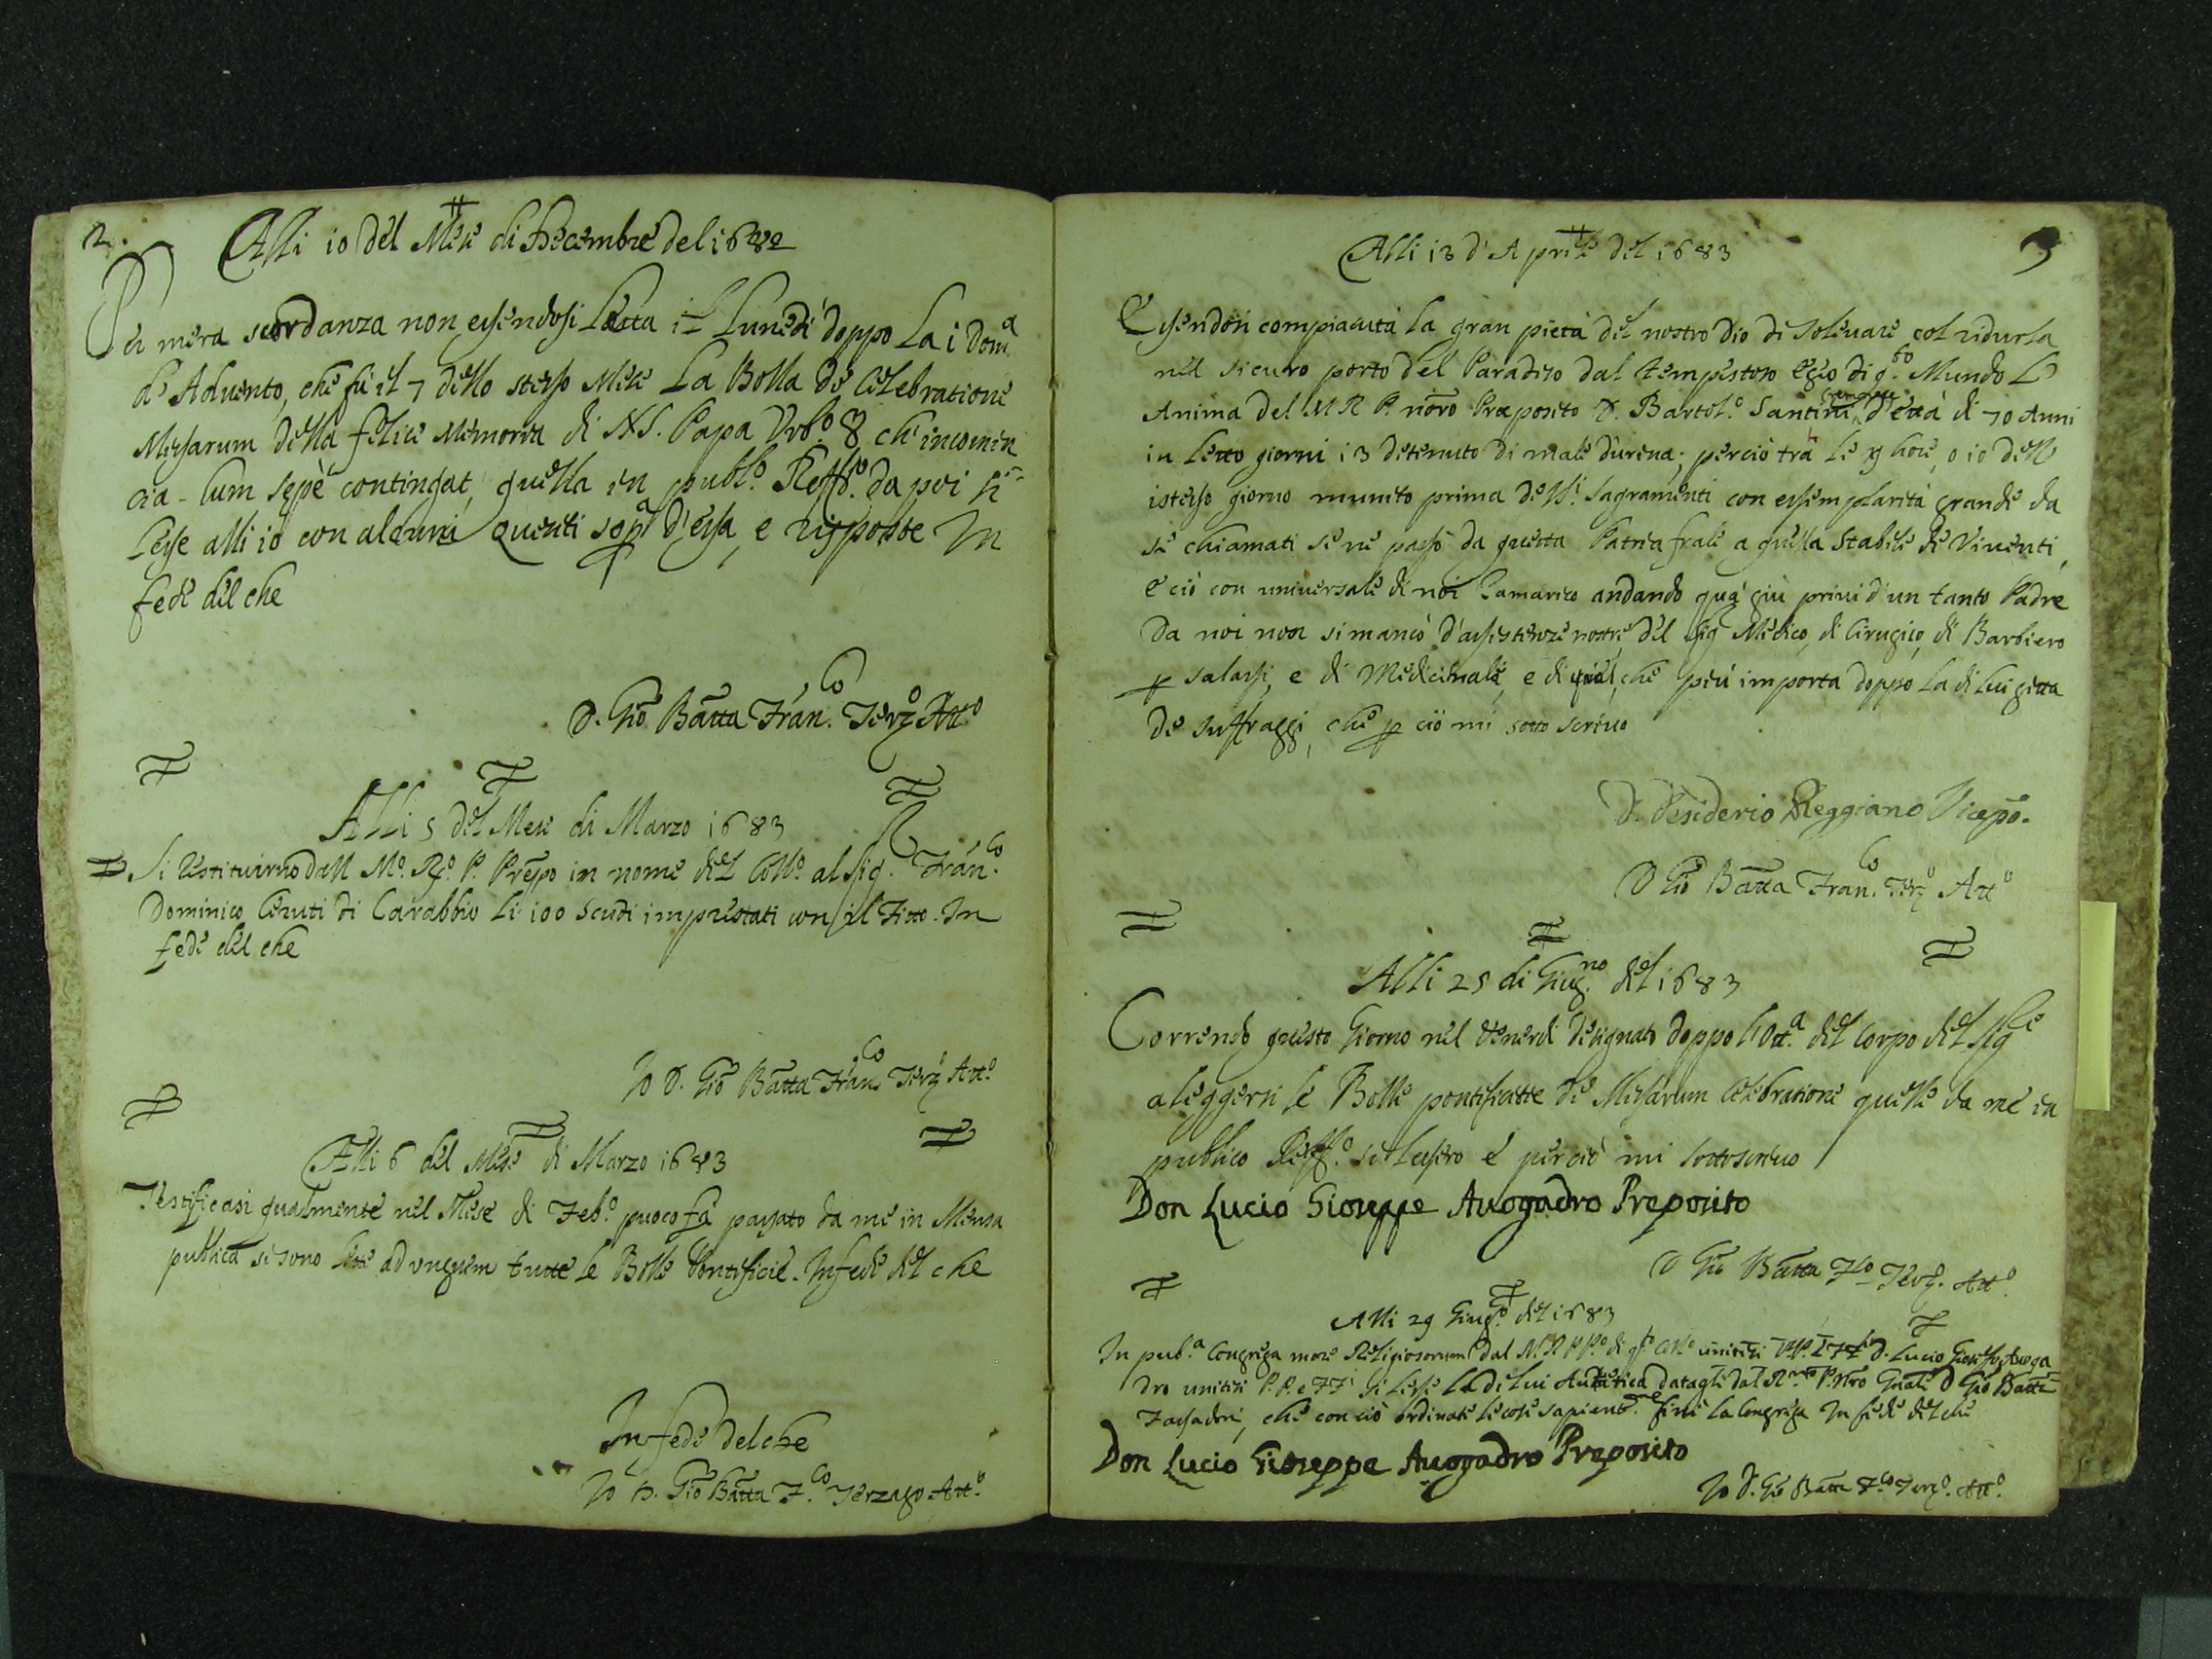 2.
Alli 10 del Mese di Decembre del 1682
Per mera scordanza non essendosi Letta il Lunedi doppo La i Dom.a
de Advento, che fù il 7 dello stesso Mese La Bolla de Celebratione
Missarum della felice Memoria di N.S. Papa Urb.o 8 ch'incomin
cia - Cum sepè contingat, quella in publ.o Reff.o da poi si
lesse alli 10 con alcuni quesiti sop.a d'essa, e risposte In
fede del che
D. Gio Batta Fran.co Terz.o Att.o
Alli 5 del Mese di Marzo 1683
Si restituirno dall M.o R.o P. Prepo in nome del Coll.o al Sig.r Fran.co
Dominico Ceruti di Carabbio Li 100 Scudi imprestati con il Fitto. In
fede del che
Io D. Gio Batta Fran.co Terz.o Att.o
Alli 6 del Mese di Marzo 1683
Testificasi qualmente nel Mese di Feb.o puoco fà passato da me in Mensa
publica si sono lette ad unguem tutte le Bolle Pontificie. In fede del che
In fede del che
Io D. Gio Batta F.co Terzago Att.o
3
Alli 13 d'Aprile del 1683
Essendosi compiaciuta la gran pietà del nostro Dio di solevare col ridurla
nel sicuro porto del Paradiso dal tempestoso Egeo di q.to Mundo L
Anima del M R P. nōro Preposito D. Bartol.o Santini d'età di 70 Anni
in Letto giorni 13 detenuto di male d'urena; perciò trà le 9 hore, o 10 dell
istesso giorno munito prima de SS.i Sagramenti con essemplarità grande da
se chiamati se ne passò da questa Patria frale a quella Stabile de Viventi,
e ciò con universale di noi Ramarico andando quà giù privi d'un tanto Padre
Da noi non si mancò d'assistenze nostre del Sig Medico, di Cirugico, di Barbiero
p salassi, e di Medicinali, e di quel, che più importa doppo La di Lui gitta
de suffraggi, che p ciò mi sotto scrivo
D. Desiderio Reggiano Vicepo.
D Gio Batta Fran.co Terz.o Att.o
Alli 25 di Giug.no del 1683
Correndo questo Giorno nel Venerdi designato doppo l'Ott.a del Corpo del Sig.re
a leggersi le Bolle pontificie de Missarum Celebratione quelle da me in
publico Reff.o si lessero e perciò mi sottoscrivo
Don Lucio Gioseppe Avogadro Preposito
D Gio Batta F.co Terz.o Att.o
Alli 29 Giug.o del 1683
In pub.a Congrega more Religiosorum dal M. R P P.o di q.to Coll.o D. Lucio Gioseffo Avoga
dro unitisi P.P. e FF si lesse la di Lui datagli dal R.mo P. Nro Gnale D Gio Batta
che con ciò ordinate le cose sapient.me finì la Congrega In fede del che
Don Lucio Gioseppe Avogadro Preposito
Io D. Gio Batta F.co Terz.o Att.o